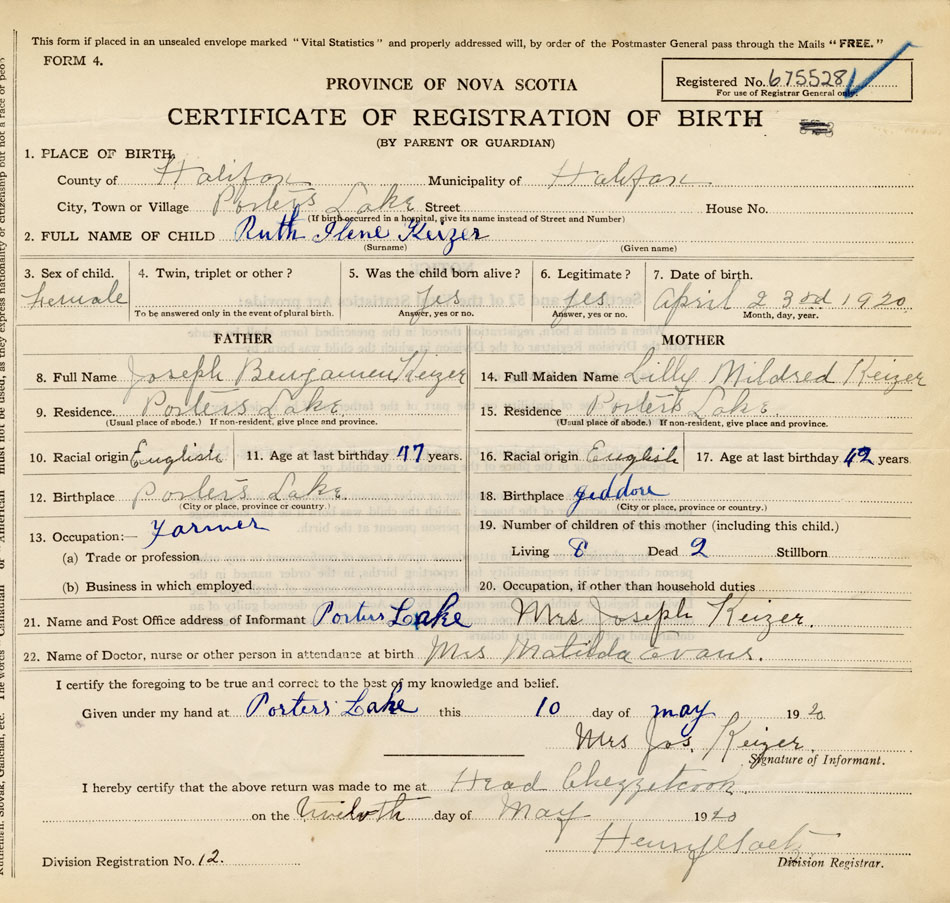 This form if placed in an unsealed envelope marked "Vital Statistics" and properly addressed will, by order of the Postmaster General pass through the Mails "FREE."
FORM 4.
Registered No. 675528
For use of Registrar General only.
PROVINCE OF NOVA SCOTIA
CERTIFICATE OF REGISTRATION OF BIRTH
(BY PARENT OR GUARDIAN)
1. PLACE OF BIRTH,
County of Halifax Municipality of Halifax
City, Town or Village Porters Lake Street House No.
(If birth occurred in a hospital, give its name instead of Street and Number)
2. FULL NAME OF CHILD Ruth Ilene Keizer
(Surname) (Given name)
3. Sex of child. 4. Twin, triplet or other? 5. Was the child born alive? 6. Legitimate? 7. Date of birth.
female yes yes April 23rd 1920
To be answered only in the event of plural birth. Answer, yes or no. Answer, yes or no. Month, day, year.
FATHER MOTHER
8. Full Name Joseph Benjamen Keizer 14. Full Maiden Name Lilly Mildred Keizer
9. Residence. Porters Lake 15. Residence Porters Lake
(Usual place of abode.) If non-resident, give place and province. (Usual place of abode.) If non-resident, give place and province.
10. Racial origin English 11. Age at last birthday 47 years. 16. Racial origin English 17. Age at last birthday 42 years
12. Birthplace Porters Lake. 18. Birthplace Jeddore
(City or place, province or country.) (City or place, province or country.)
13. Occupation:— Farmer 19. Number of children of this mother (including this child.)
(a) Trade or profession Living 8 Dead 2 Stillborn
(b) Business in which employed 20. Occupation, if other than household duties
21. Name and Post Office address of Informant Porters Lake Mrs Joseph Keizer.
22. Name of Doctor, nurse or other person in attendance at birth Mrs Matilda Evans.
I certify the foregoing to be true and correct to the best of my knowledge and belief.
Given under my hand at Porters Lake this 10 day of may 1920
Mrs Jos. Keizer.
Signature of Informant.
I hereby certify that the above return was made to me at Head Chezzetcook.
on the Twelvth day of May 1920
Division Registration No. 12. Division Registrar.